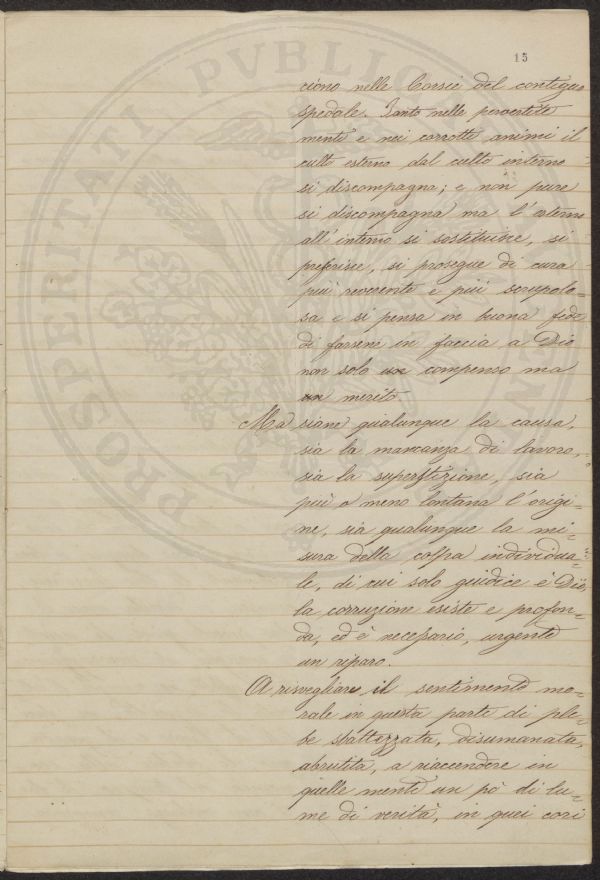 15
ciono nelle Corsie del contiguo
spedale. Tanto nelle pervertite
menti e nei corrotti animi il
culto esterno dal culto interno
si discompagna; e non pure
si discompagna ma l'esterno
all'interno si sostituisce, si
preferisce, si prosegue di cura
più reverente e più scrupolo-
sa e si pensa in buona fede
di farsene in faccia a Dio
non solo un compenso ma
un merito.
Ma siane qualunque la causa,
sia la mancanza di lavoro,
sia la superstizione, sia
più o meno lontana l'origi-
ne, sia qualunque la mi-
sura della colpa individua-
le, di cui solo giudice è Dio,
la corruzione esiste e profon-
da, ed è necessario, urgente
un riparo.
A risvegliare il sentimento mo-
rale in questa parte di ple-
be sbattezzata, disumanata,
abrutita, a riaccendere in
quelle menti un pò di lu-
me di verità, in quei cori
PROSPERITATI PVBLICAE